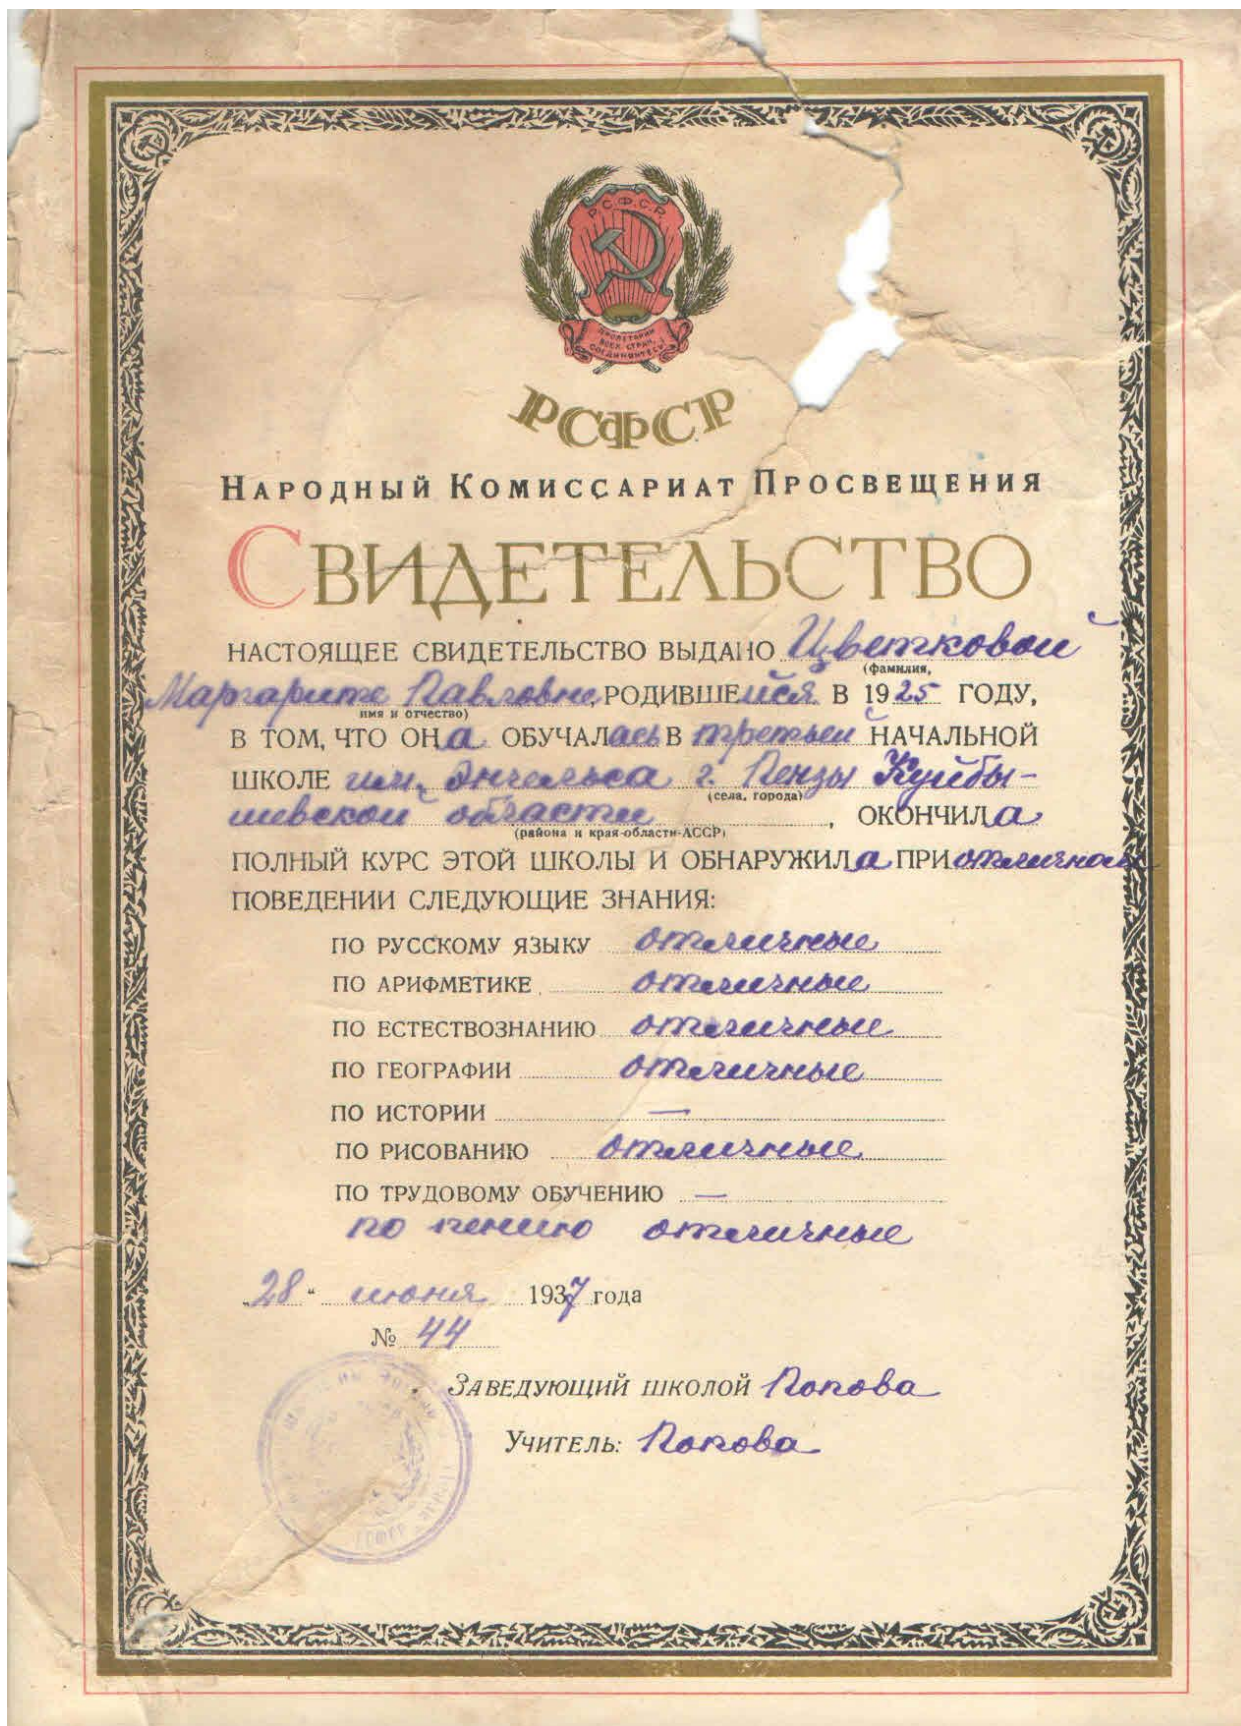 Р.С.Ф.С.Р.
ПРОЛЕТАРИИ
ВСЕХ СТРАН,
СОЕДИНЯЙТЕСЬ!
РСФСР
НАРОДНЫЙ КОМИССАРИАТ ПРОСВЕЩЕНИЯ
СВИДЕТЕЛЬСТВО
НАСТОЯЩЕЕ СВИДЕТЕЛЬСТВО ВЫДАНО Цветковой
(фамилия,
Маргарите Павловне, РОДИВШЕЙСЯ В 1925 ГОДУ,
имя и отчество)
В ТОМ, ЧТО ОНА ОБУЧАЛАСЬ В третьей НАЧАЛЬНОЙ
ШКОЛЕ им. Энгельса г. Пензы Куйбы-
(села, города)
шевской области, ОКОНЧИЛА
(района и края-области-АССР)
ПОЛНЫЙ КУРС ЭТОЙ ШКОЛЫ И ОБНАРУЖИЛА ПРИ отличном
ПОВЕДЕНИИ СЛЕДУЮЩИЕ ЗНАНИЯ:
ПО РУССКОМУ ЯЗЫКУ отличные
ПО АРИФМЕТИКЕ отличные
ПО ЕСТЕСТВОЗНАНИЮ отличные
ПО ГЕОГРАФИИ отличные
ПО ИСТОРИИ —
ПО РИСОВАНИЮ отличные
ПО ТРУДОВОМУ ОБУЧЕНИЮ —
по пению отличные
„28“ июня 1937 года
№ 44
ЗАВЕДУЮЩИЙ ШКОЛОЙ Попова
УЧИТЕЛЬ: Попова